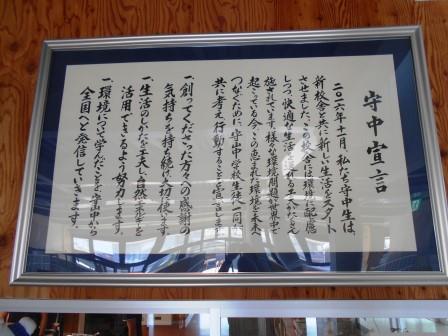 守中宣言
二〇一六年十一月、私たち守中生は、
新校舎と共に新しい生活をスタート
させました。この校舎には環境に配慮
しつつ、快適な生活を送れる工夫がたくさん
施されています。様々な環境問題が世界中で
起こっている今、この恵まれた環境を未来へ
つなぐために、守山中学校生徒一同、
共に考え行動することを宣言します。
一、創ってくださった方々への感謝の
気持ちを持ち続け、大切に使います。
一、生活のしかたを工夫し、自然の恵みを
活用できるよう努力します。
一、環境について学んだことを、守中から
全国へと発信していきます。